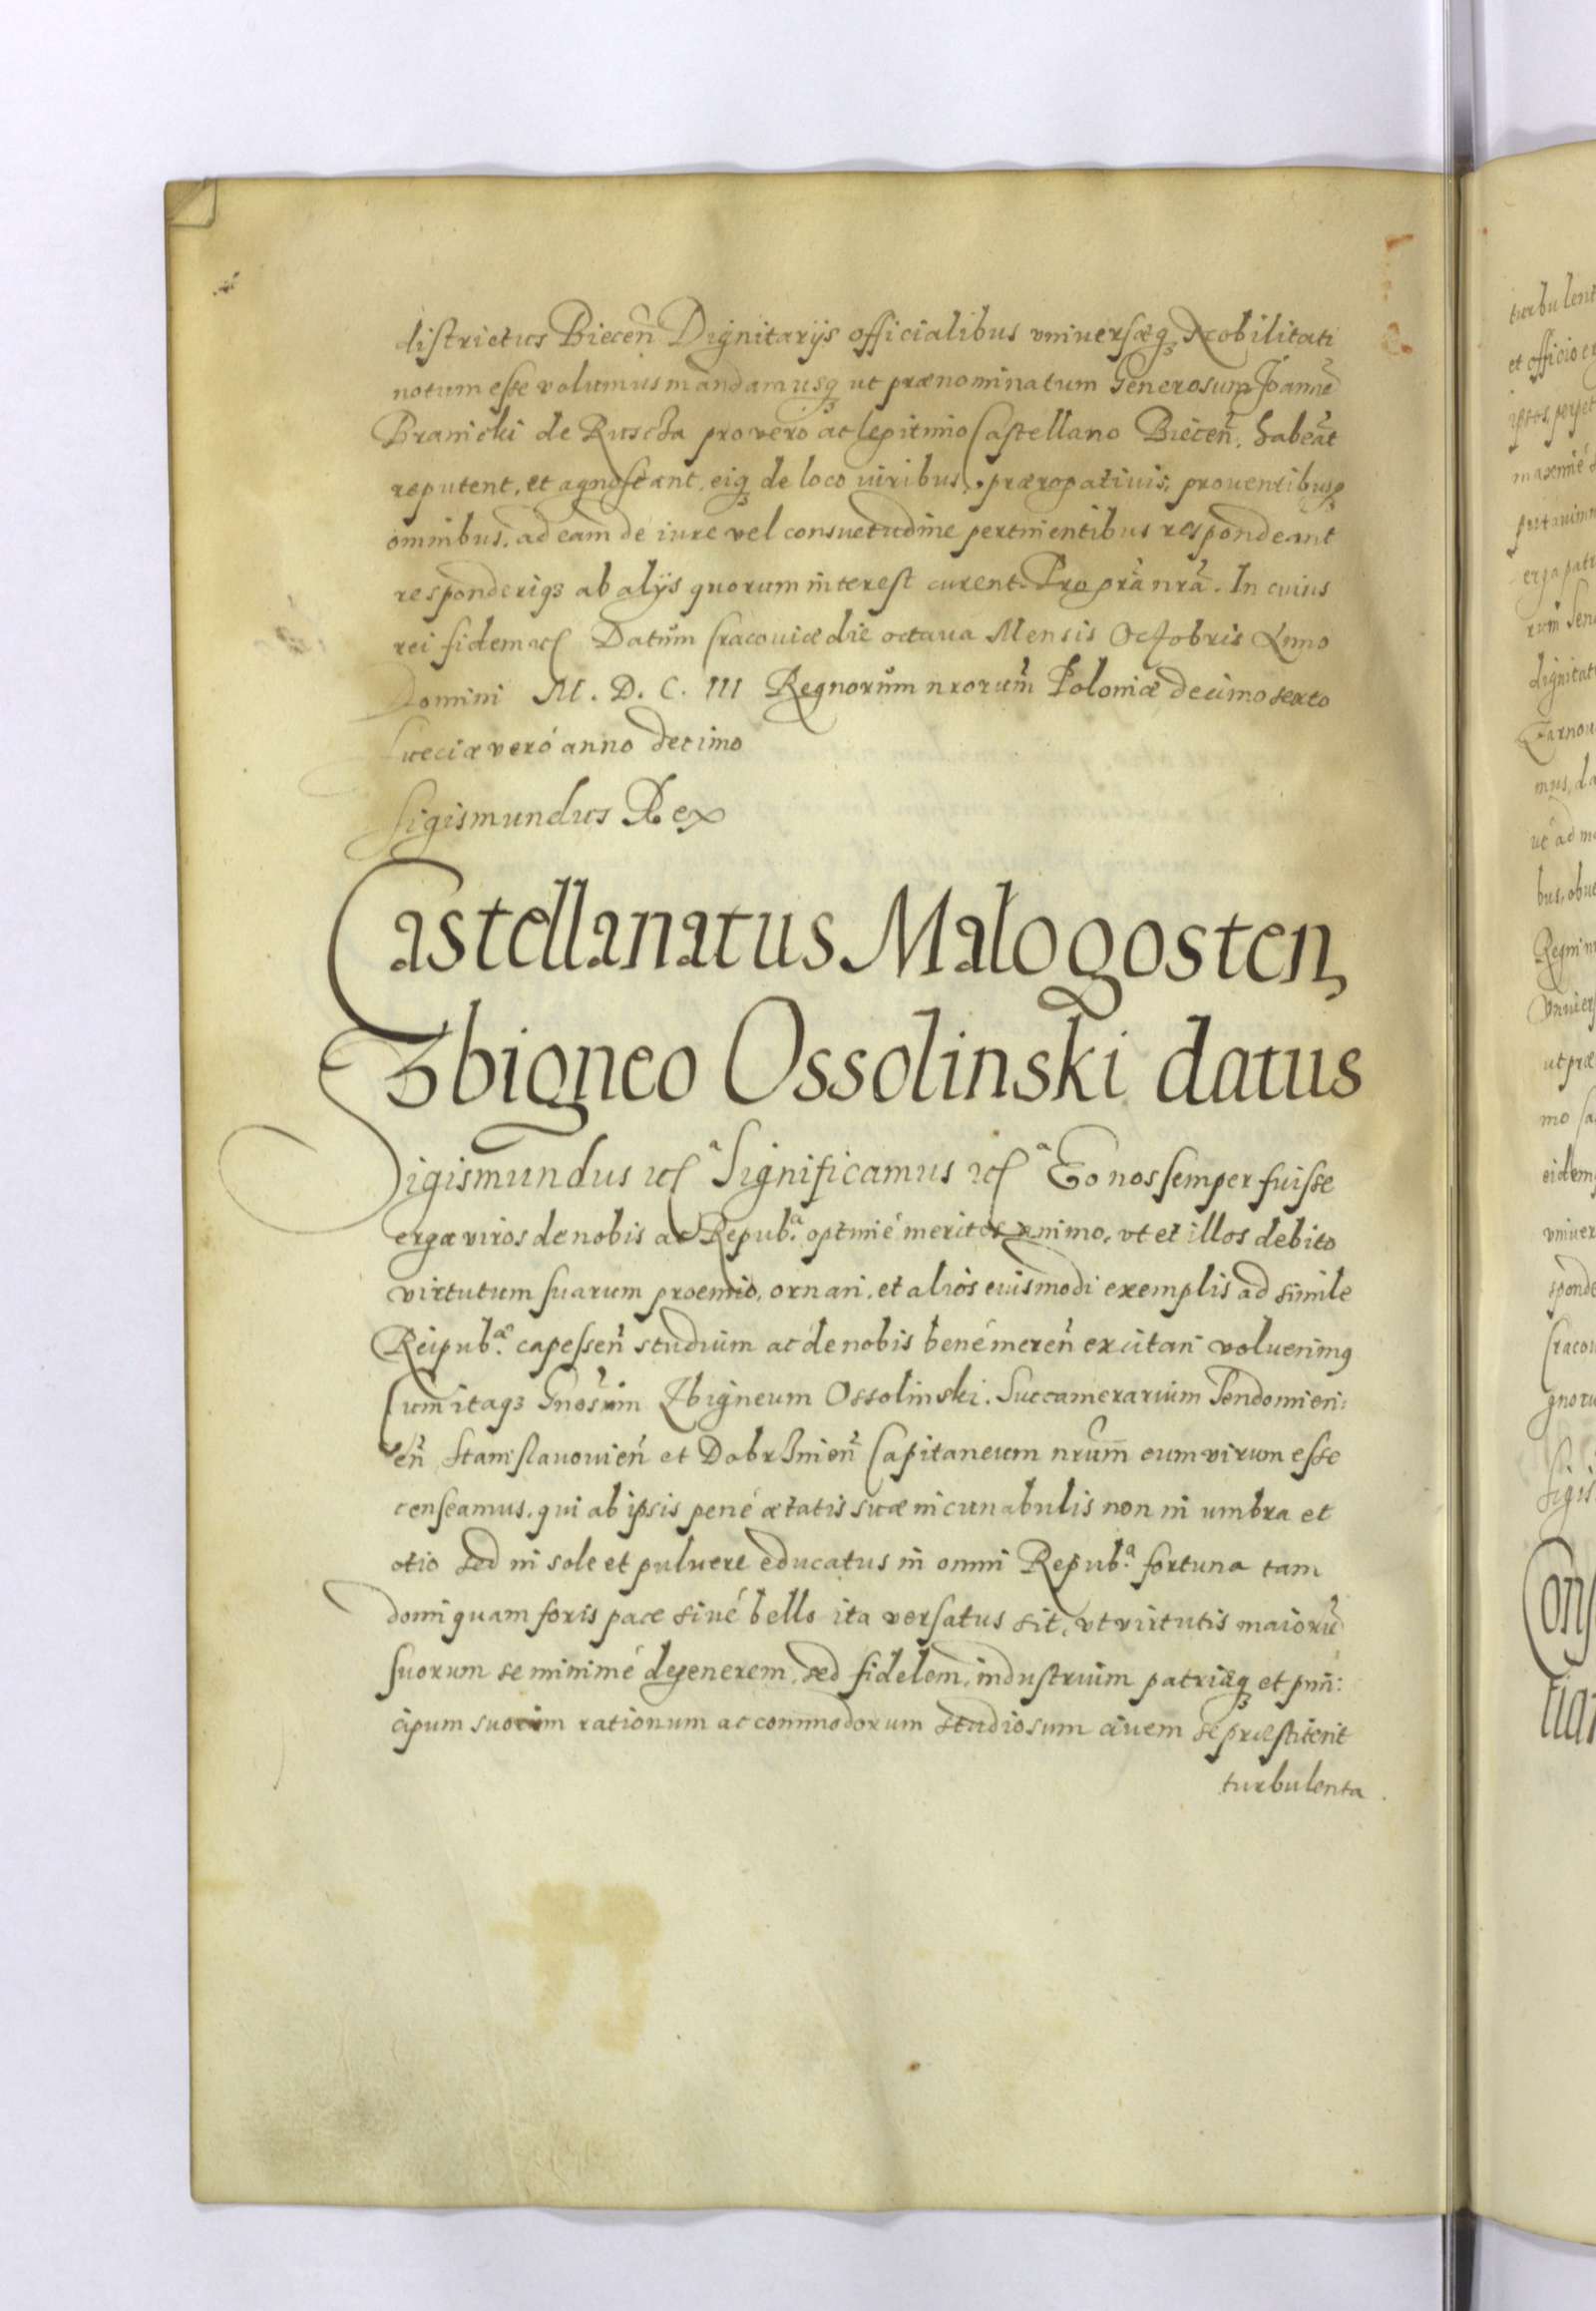 districtus Biecen̄ Dignitarijs officialibus vniuersæq3 Nobilitati
notum esse volumus mandamusq3 ut prænominatum Generosum Joannē
Branicki de Ruscza pro vero ac legitimo Castellano Biecen̄. habeāt
reputent, et agnoscant, eiq3 de loco iuribus, prærogatiuis, prouentibusq3
omnibus, ad eam de iure vel consuetudine pertinentibus respondeant
responderiq3 ab alijs quorum interest curent. Pro grā nrā. In cuius
rei fidem etc Datum Cracouiæ die octaua Mensis Octobris Anno
Domini M. D. C. III Regnorum nrorum̄ Poloniæ decimo sexto
Sueciæ veró anno decimo
Sigismundus Rex
Castellanatus Małogosten
Zbigneo Ossolinski datus
Sigismundus etcª Significamus etcª Eo nos semper fuisse
erga viros de nobis ac Repub.ª optimé meritos animo, vt et illos debito
virtutum suarum proemio, ornari, et alios euismodi exemplis ad simile
Reipub.æ capessen̄ studium ac de nobis bené meren̄ excitari voluerimus
Cum itaq3 Gnosum Zbigneum Ossolinski. Succamerarium Sendomieri:
en̄ Stanislauouien̄ et Dobrzinien̄ Capitaneum nrum̄ eum virum esse
censeamus, qui ab ipsis pené ætatis suæ incunabulis non in umbra et
otio sed in sole et puluere educatus in omni Repub.ª fortuna tam
domi quam foris pace siué bello ita versatus sit, vt virtutis maiorū
suorum se minimé degenerem, sed fidelem, industrium patriæq3 et prin̄:
cipum suorum rationum ac commodorum studiosum ciuem se præstiterit
turbulenta